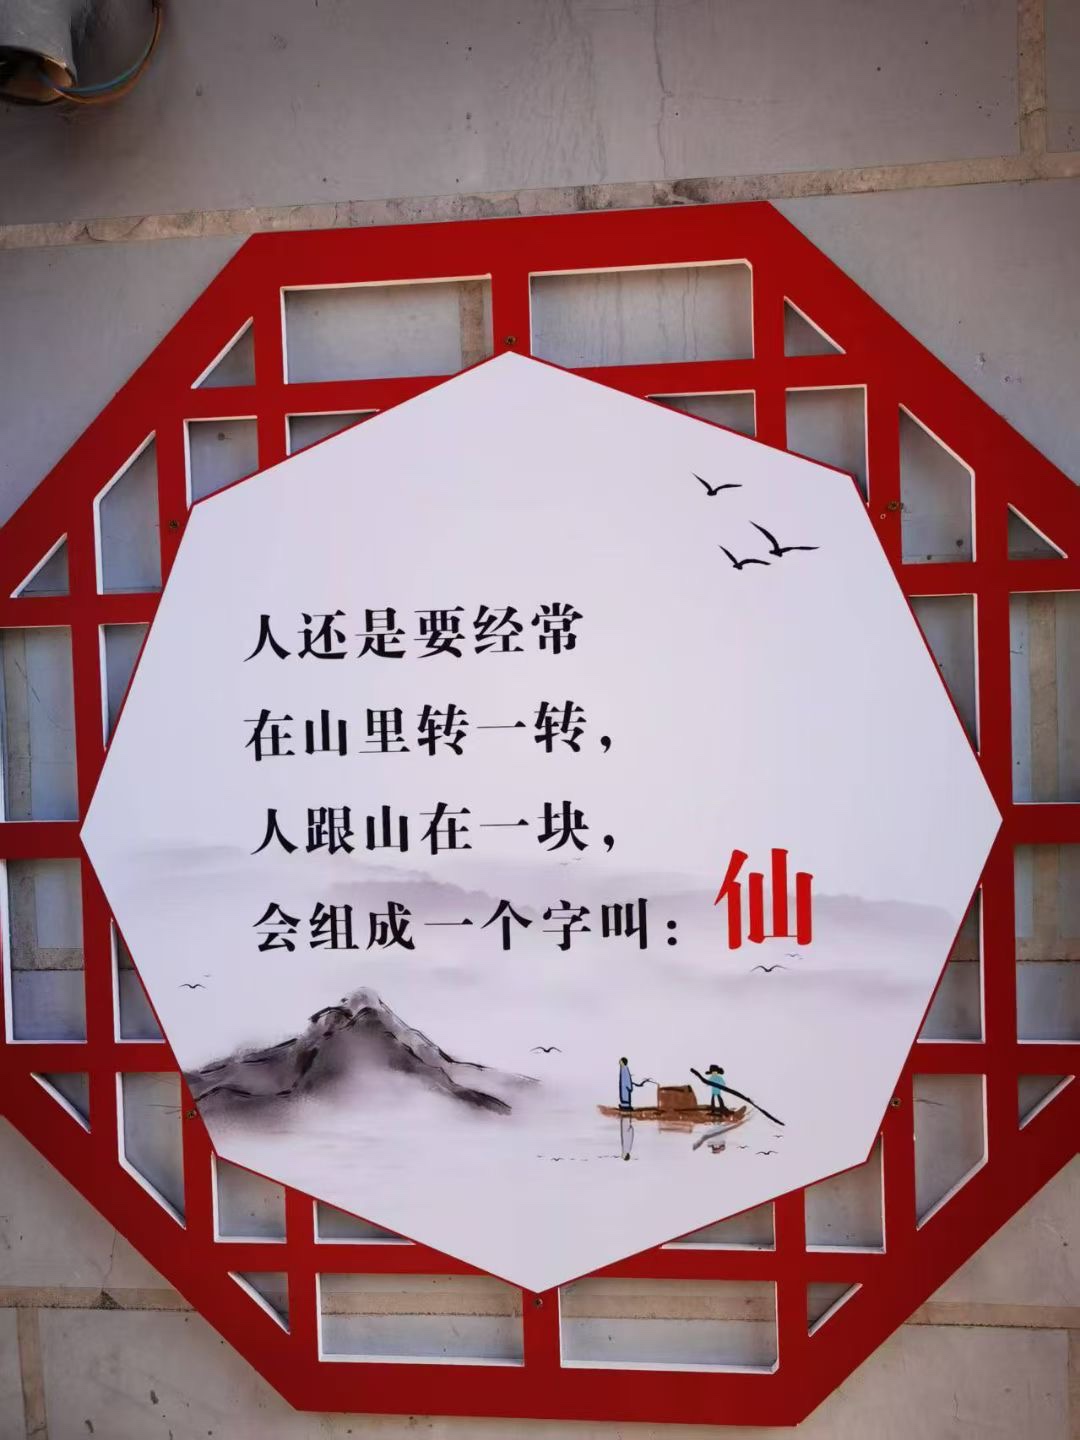 人还是要经常
在山里转一转，
人跟山在一块，
会组成一个字叫：仙